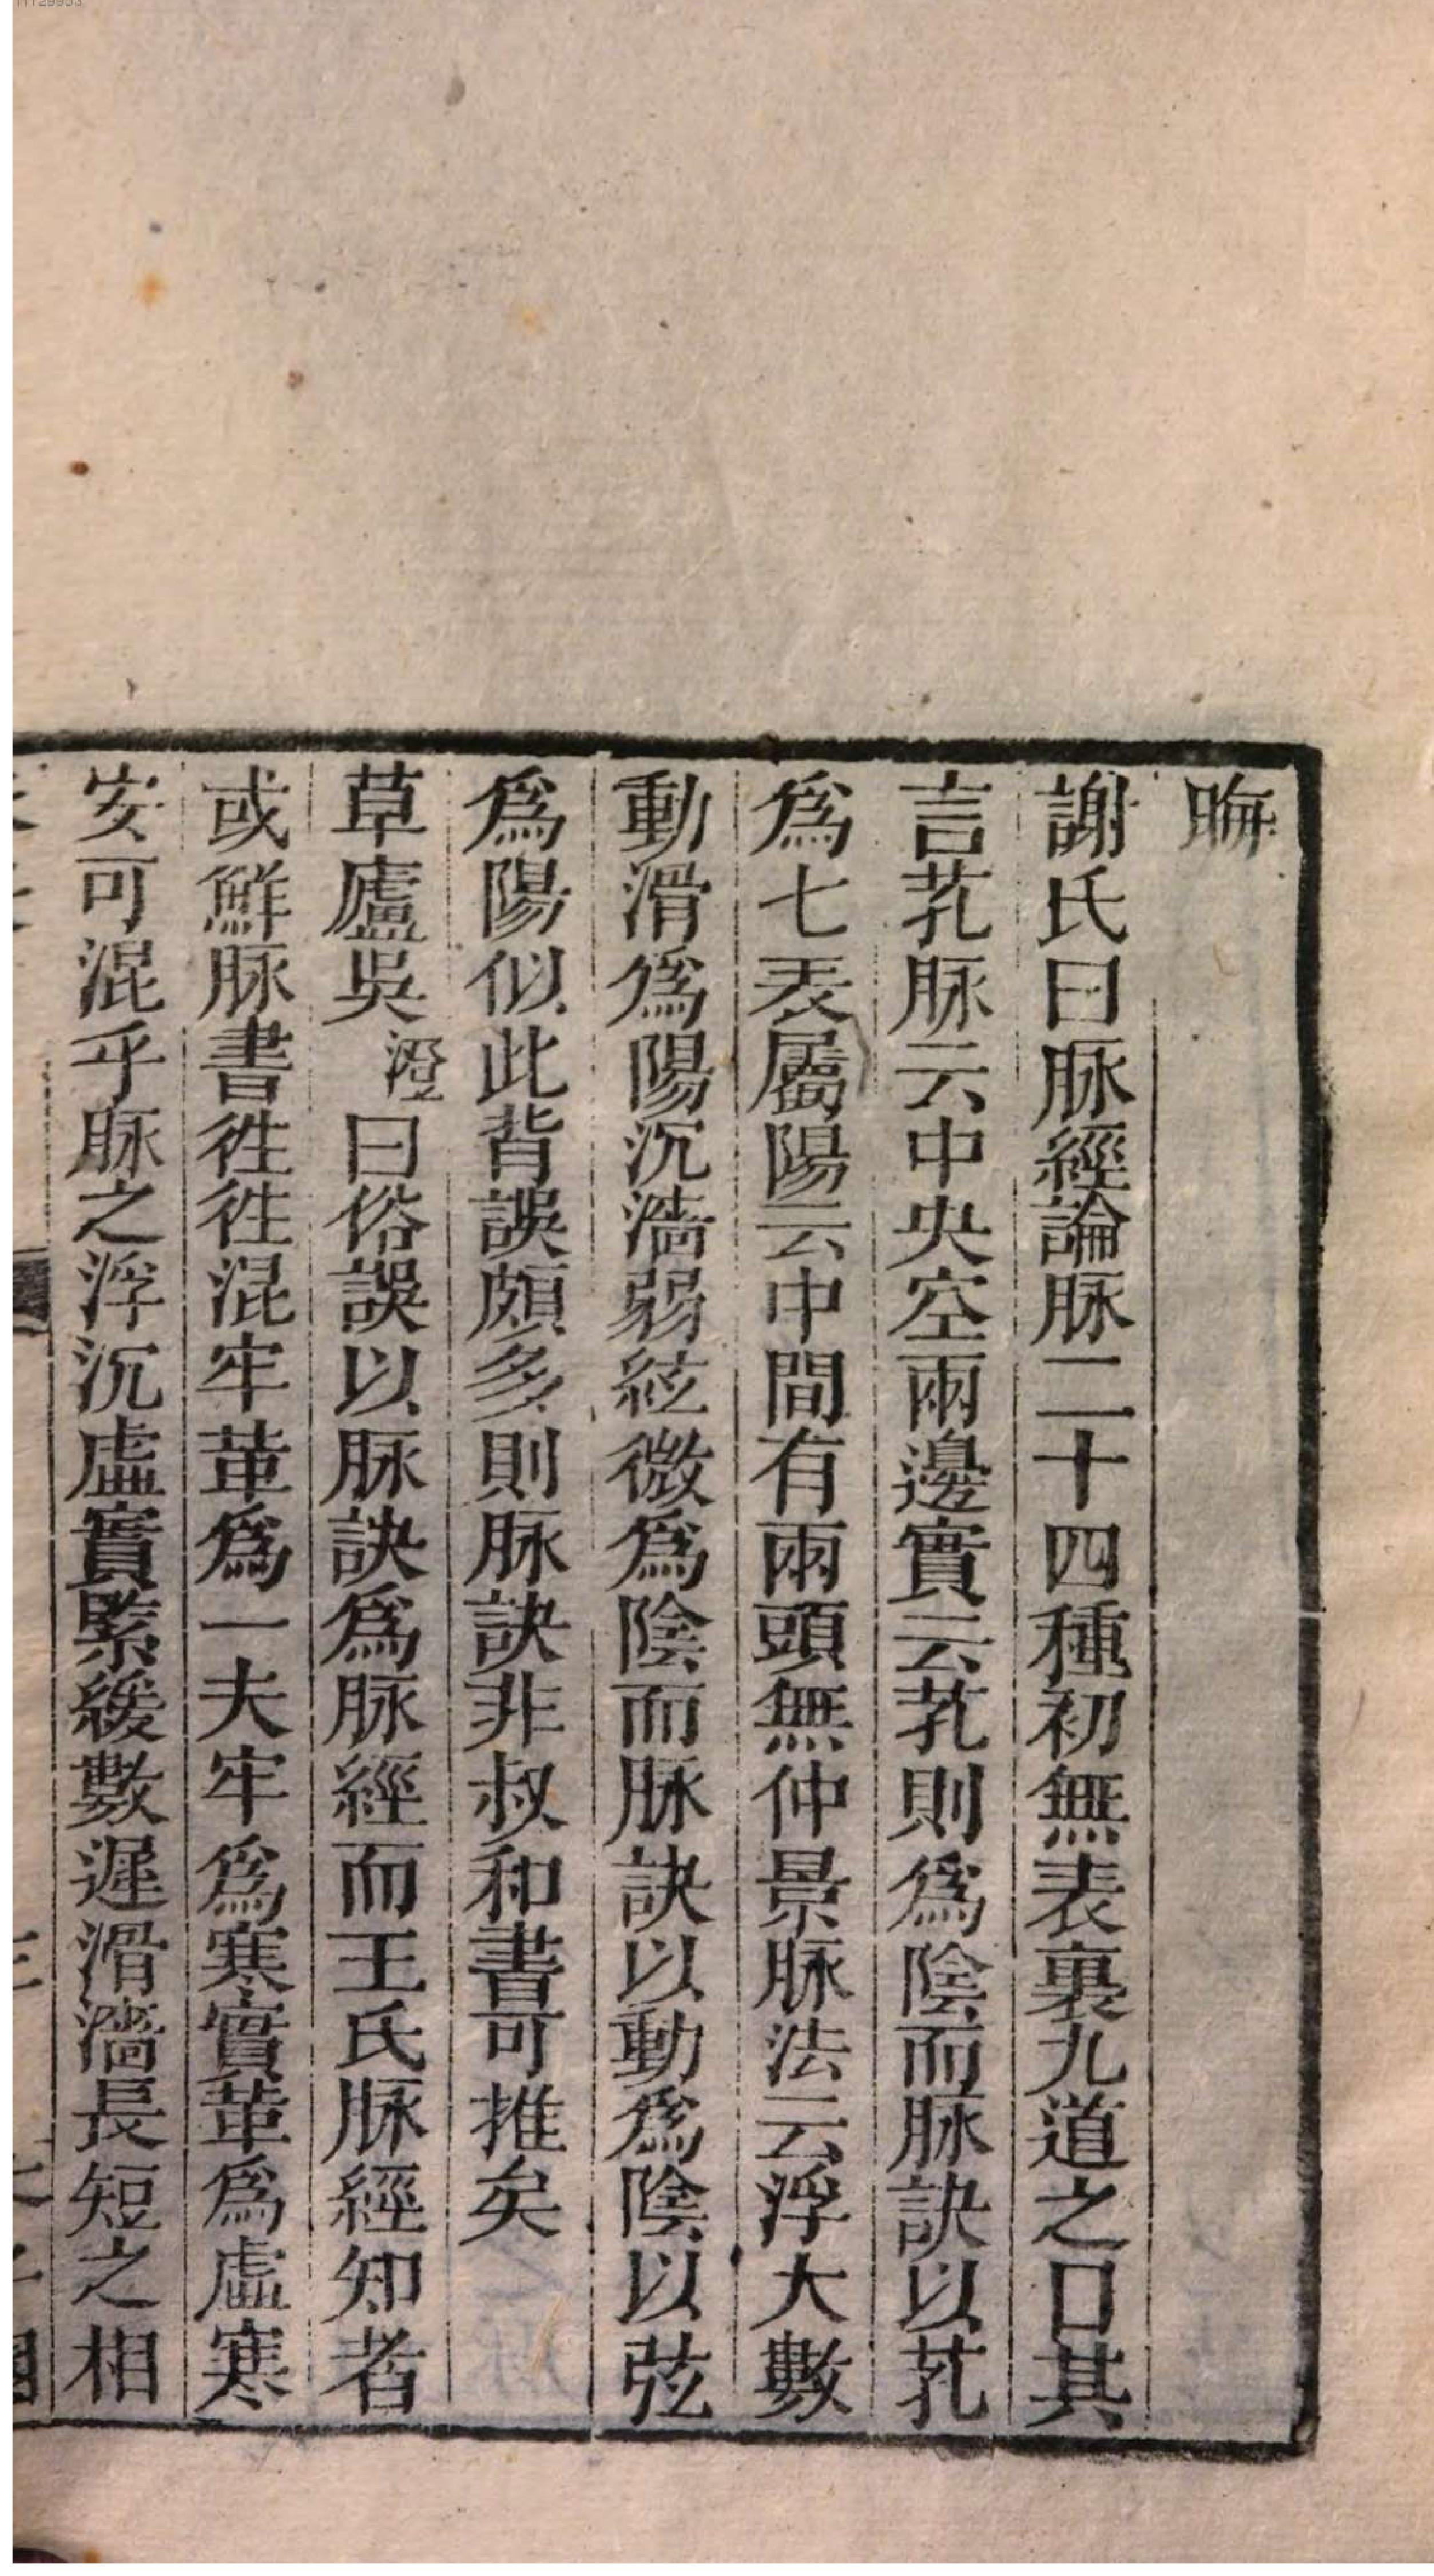 晦
謝氏曰脉經論脉二十四種初無表裏九道之口其
言芤脉云中央空兩邊實云芤則爲陰而脉訣以芤
爲七表屬陽云中間有兩頭無仲景脉法云浮大數
動滑爲陽沉濇弱弦微爲陰而脉訣以動爲陰以弦
爲陽似此背誤頗多則脉訣非叔和書可推矣
草廬吳澄曰俗誤以脉訣爲脉經而王氏脉經知者
或鮮脉書徃徃混牢革爲一夫牢爲寒實革爲虛寒
安可混乎脉之浮沉虛實緊緩數遲滑濇長短之相